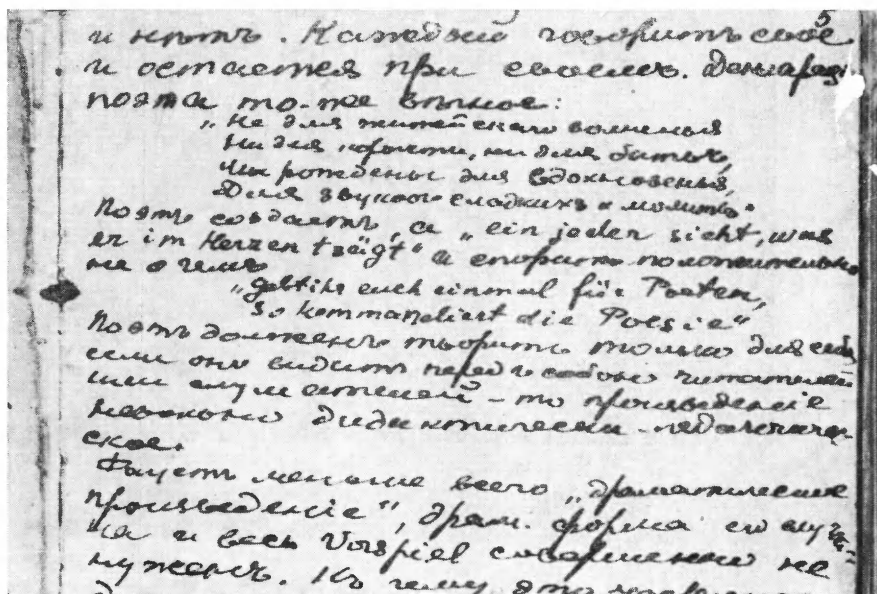 5
и нѣтъ. Каждый говоритъ свое
и остается при своемъ. Девиз
поэта то-же вѣчное:
„Не для житейскаго волненья
Ни для корысти, ни для битвъ,
Мы рождены для вдохновенья,
Для звуковъ сладкихъ и молитвъ"
Поэтъ создаетъ, а „ein jeder sieht, was
er im Herzen trägt" и споритъ положительно
не о чемъ
„gebt ihr euch einmal für Poeten,
So kommandiert die Poesie"
Поэтъ долженъ творить только для себя
если онъ видитъ передъ собою читателей
или слушателей – то произведеніе
невольно дидактически-педагогиче-
ское.
Фаустъ меньше всего „драматическое
произведеніе", драм. форма его
на и весь Vorspiel совершенно не
нуженъ. Къ чему это